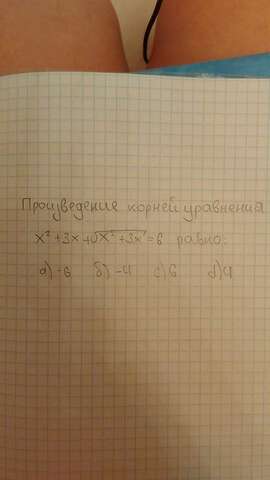 Произведение корней уравнения
x² + 3x + √x² + 3x = 6 равно:
а) -6 б) -4 с) 6 д) 4